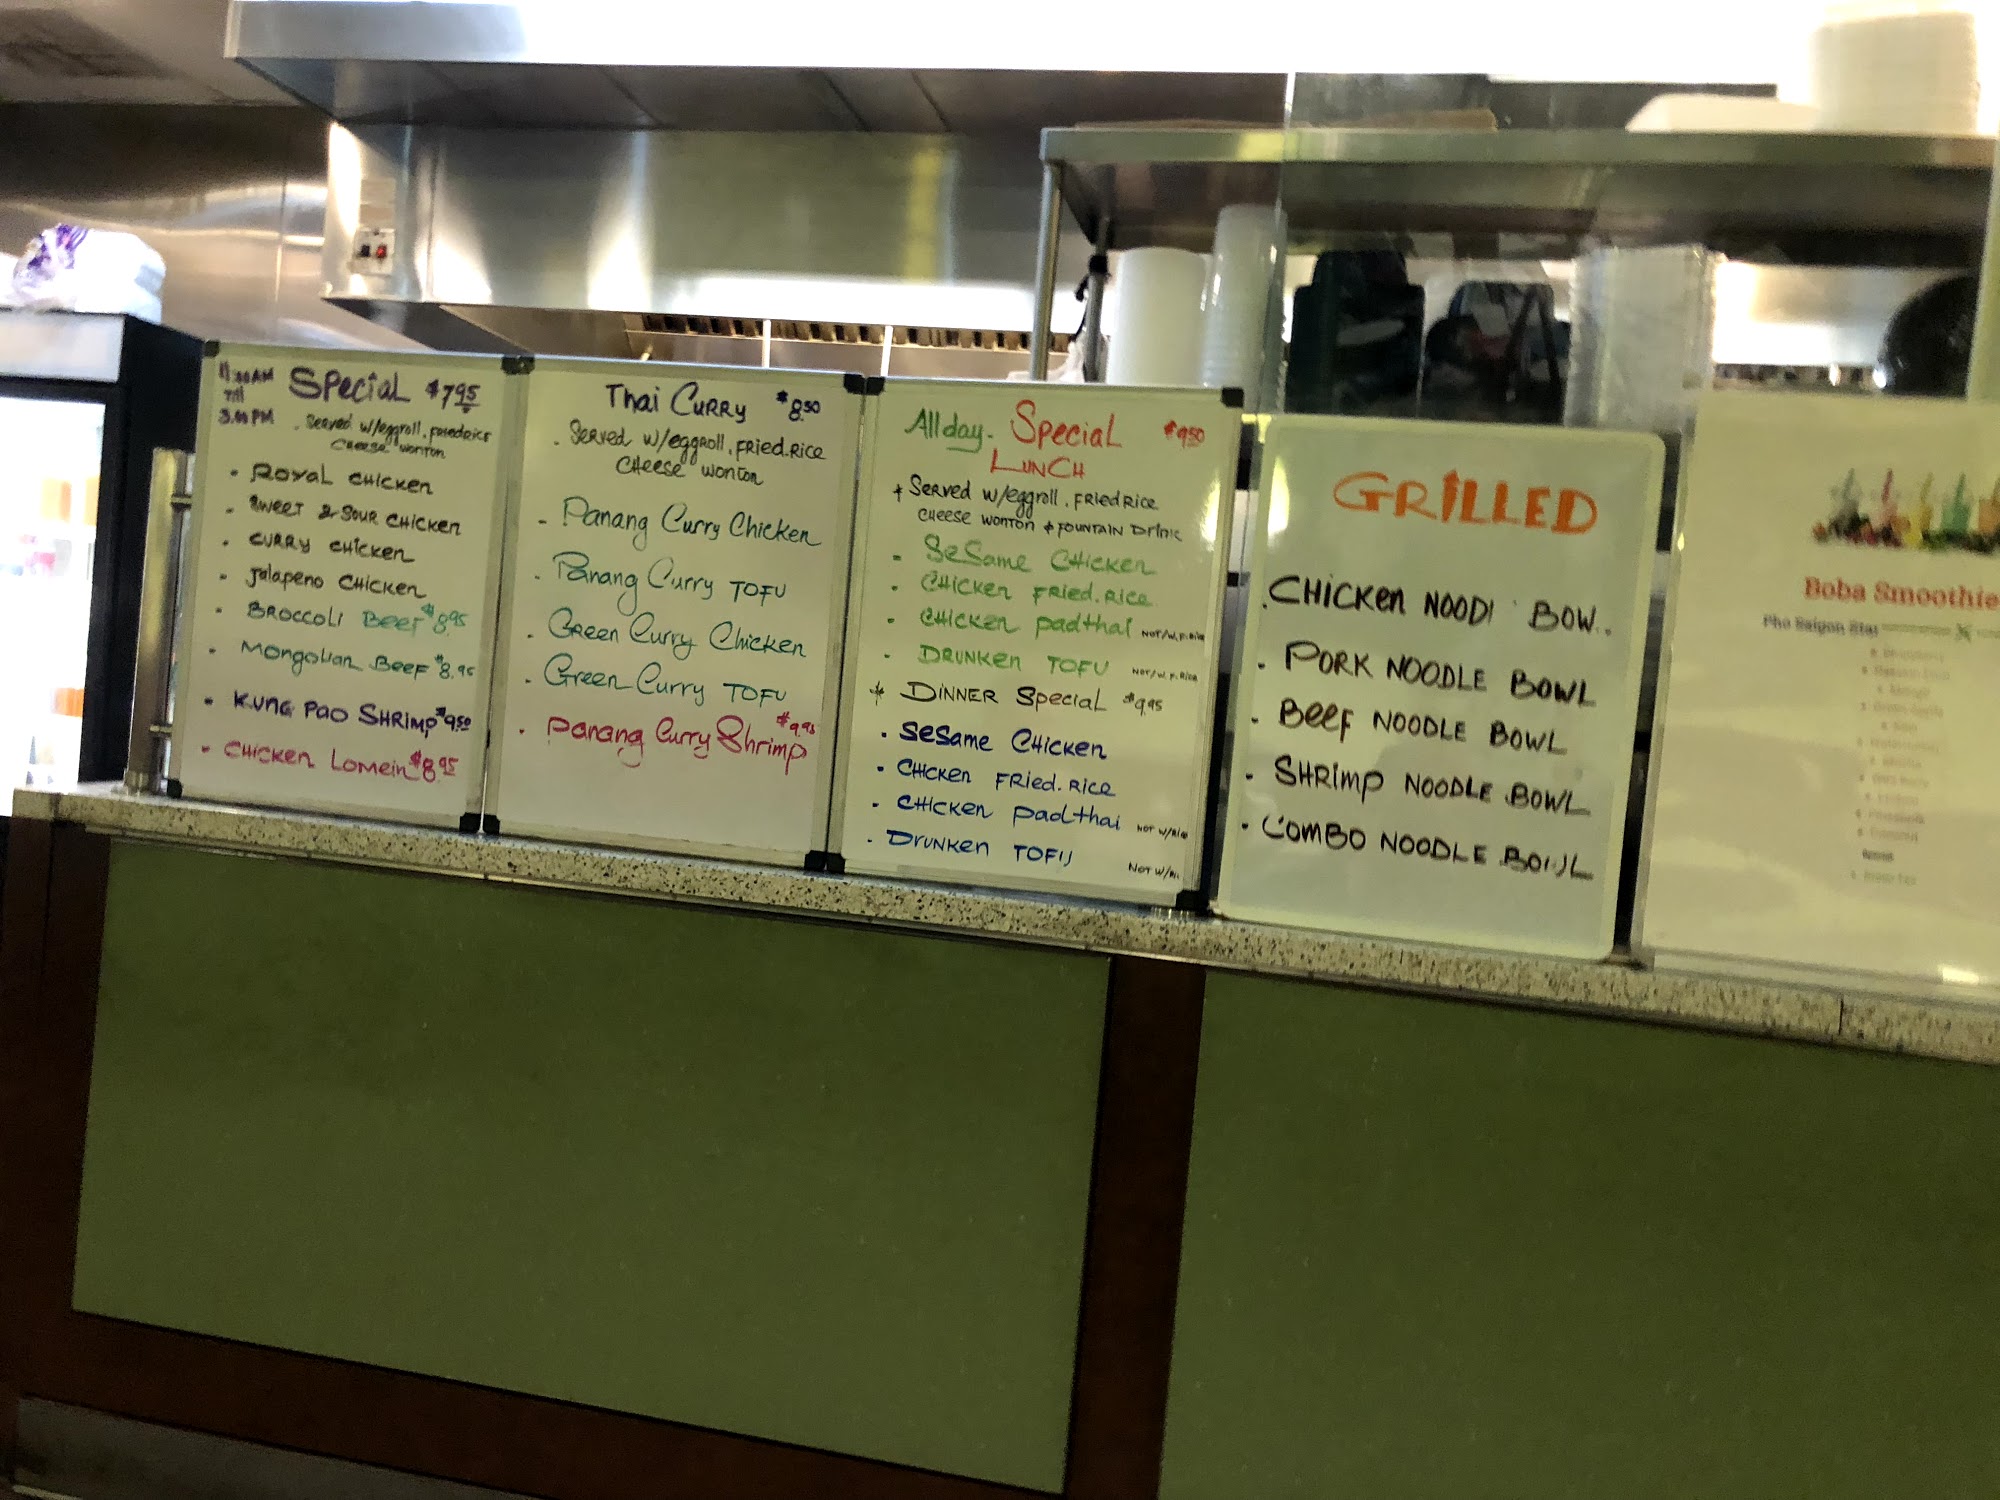 11:00AM
Till
3:00PM
Special $7.95
. Served w/eggroll, friedrice
cheese wonton
- Royal chicken
- sweet & sour chicken
- curry chicken
- jalapeno chicken
- Broccoli Beef $8.95
- Mongolian Beef $8.95
- Kung Pao Shrimp $9.50
- Chicken Lomein $8.95
Thai Curry $8.50
. Served w/eggroll, fried.rice
cheese wonton
- Panang Curry Chicken
- Panang Curry TOFU
- Green Curry Chicken
- Green Curry TOFU
- Panang Curry Shrimp $9.95
All day. Special $9.50
Lunch
+ Served w/eggroll, friedrice
cheese wonton & fountain Drink
- Sesame Chicken
- Chicken Fried.rice
- Chicken padthai NOT/W.F.Rice
- Drunken TOFU NOT/W.F.Rice
* Dinner Special $9.95
. Sesame Chicken
. Chicken Fried.rice
. Chicken padthai NOT W/Rice
. Drunken TOFU NOT W/
GRILLED
. CHICKEN NOODL BOW
. PORK NOODLE BOWL
. Beef NOODLE BOWL
- SHRIMP NOODLE BOWL
. COMBO NOODLE BOWL
Boba Smoothie
Pho Saigon Star